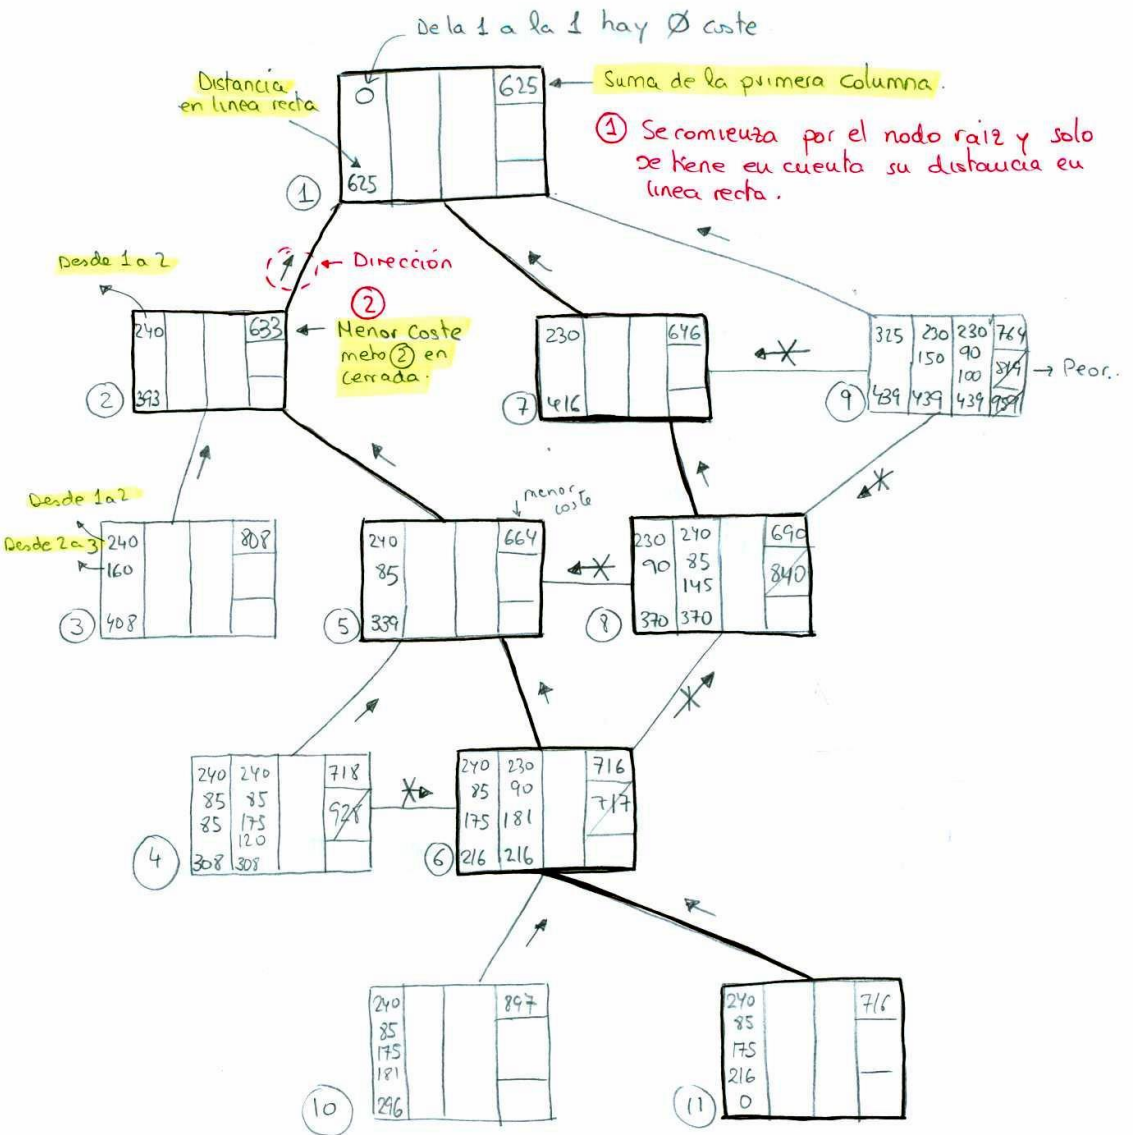 De la 1 a la 1 hay Ø coste
Distancia
en linea recta
0
625
625
Suma de la primera columna.
① Se comienza por el nodo raiz y solo
se tiene en cuenta su distancia en
linea recta.
①
Desde 1 a 2
Dirección
②
Menor Coste
meto ② en
cerrada.
240
633
393
②
230
646
416
⑦
325 230 230 764
150 90 819
100
439 439 439 959
⑨
Peor..
Desde 1a2
Desde 2a3
240
808
160
408
③
menor
coste
240
664
85
339
⑤
230 240 690
90 85 840
145
370 370
⑧
240 240 718
85 85 928
85 175
120
308 308
④
240 230 716
85 90 717
175 181
216 216
⑥
240 897
85
175
181
296
⑩
240 716
85
175
216
0
⑪